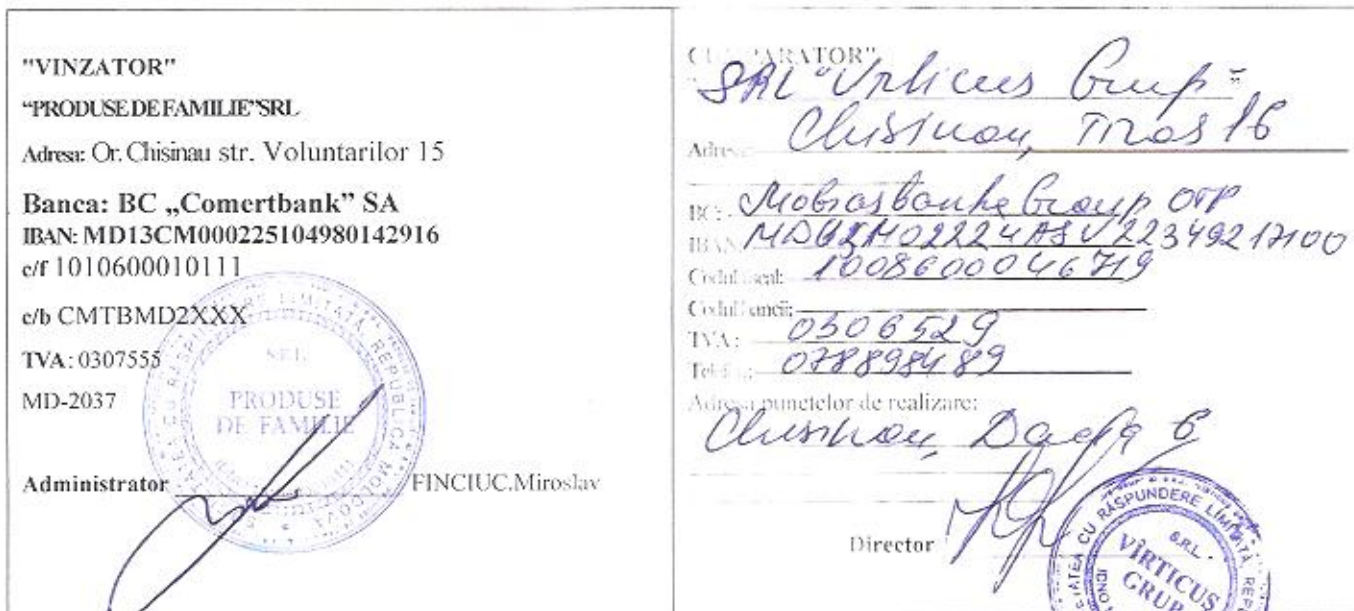 "VINZATOR"
"PRODUSE DE FAMILIE"SRL
Adresa: Or. Chisinau str. Voluntarilor 15
Banca: BC „Comertbank” SA
IBAN: MD13CM000225104980142916
c/f 1010600010111
c/b CMTBMD2XXX
TVA: 0307555
MD-2037
Administrator FINCIUC.Miroslav
SRL
PRODUSE
DE FAMILIE
REPUBLICA MOLDOVA
CUMPARATOR"
SRL "Virticus Grup"
Adresa: Chisinau, 16
BC: Mobiasbanka Group OTP
IBAN:
Codul fiscal: 1008600046719
Codul bancii:
TVA: 0306529
Telefon: 078898489
Adresa punctelor de realizare:
Chisinau, Dacia 6
Director
RĂSPUNDERE LIMITATĂ
S.R.L.
VÎRTICUS
GRUP